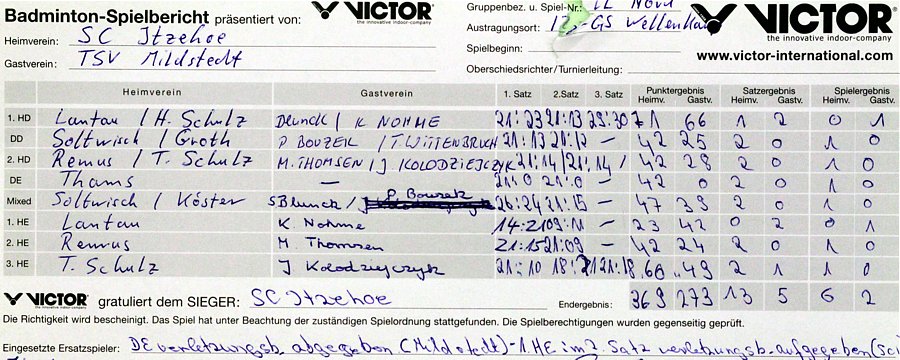 Badminton-Spielbericht präsentiert von: VICTOR the innovative indoor-company
Gruppenbez. u. Spiel-Nr.: Nord
VICTOR the innovative indoor-company
Heimverein: SC Itzehoe
Austragungsort: GS Wellenkam
www.victor-international.com
Gastverein: TSV Mildstedt
Spielbeginn:
Oberschiedsrichter/Turnierleitung:
Heimverein Gastverein 1. Satz 2. Satz 3. Satz Punktergebnis Heimv. Gastv. Satzergebnis Heimv. Gastv. Spielergebnis Heimv. Gastv.
1. HD Lantau / H. Schulz Blunck / K NOHME 21:23 21:13 29:30 71 66 1 2 0 1
DD Soltwisch / Groth P BOUZEK / T. WITTENBRUCH 21:13 21:12 — 42 25 2 0 1 0
2. HD Remus / T. Schulz M. THOMSEN / J KOLODZIEJCZYK 21:14 21:14 / 42 28 2 0 1 0
DE Thams — 21:0 21:0 — 42 0 2 0 1 0
Mixed Soltwisch / Köster S Blunck / P Bouzek 26:24 21:15 — 47 39 2 0 1 0
1. HE Lantau K Nohme 14:21 09:21 — 23 42 0 2 0 1
2. HE Remus M. Thomsen 21:15 21:09 — 42 24 2 0 1 0
3. HE T. Schulz J Kolodziejczyk 21:10 18:21 21:18 60 49 2 1 1 0
VICTOR the innovative indoor-company gratuliert dem SIEGER: SC Itzehoe Endergebnis: 369 273 13 5 6 2
Die Richtigkeit wird bescheinigt. Das Spiel hat unter Beachtung der zuständigen Spielordnung stattgefunden. Die Spielberechtigungen wurden gegenseitig geprüft.
Eingesetzte Ersatzspieler: DE verletzungsb. abgegeben (Mildstedt) - 1. HE im 2. Satz verletzungsb. aufgegeben (SC I